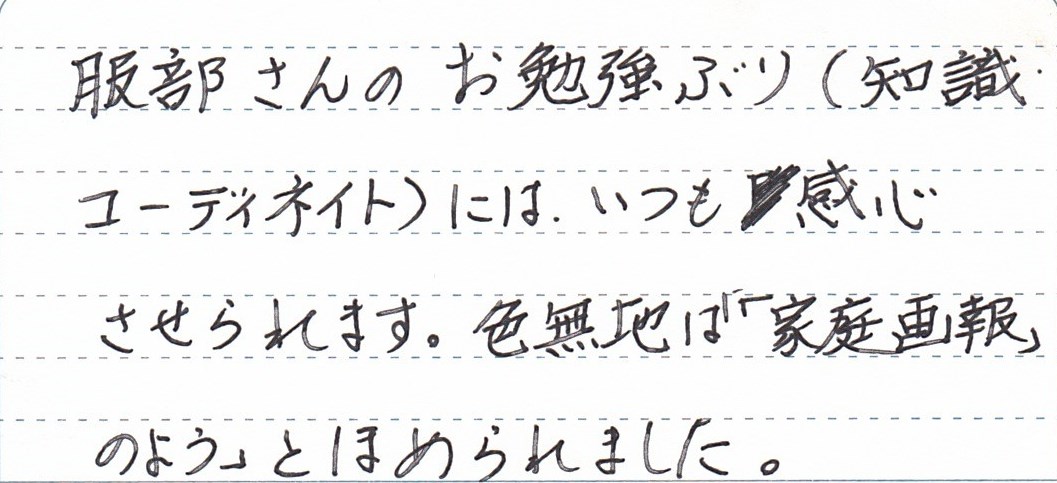 服部さんのお勉強ぶり(知識・
コーディネイト)には、いつも感心
させられます。色無地は「「家庭画報」
のよう」とほめられました。